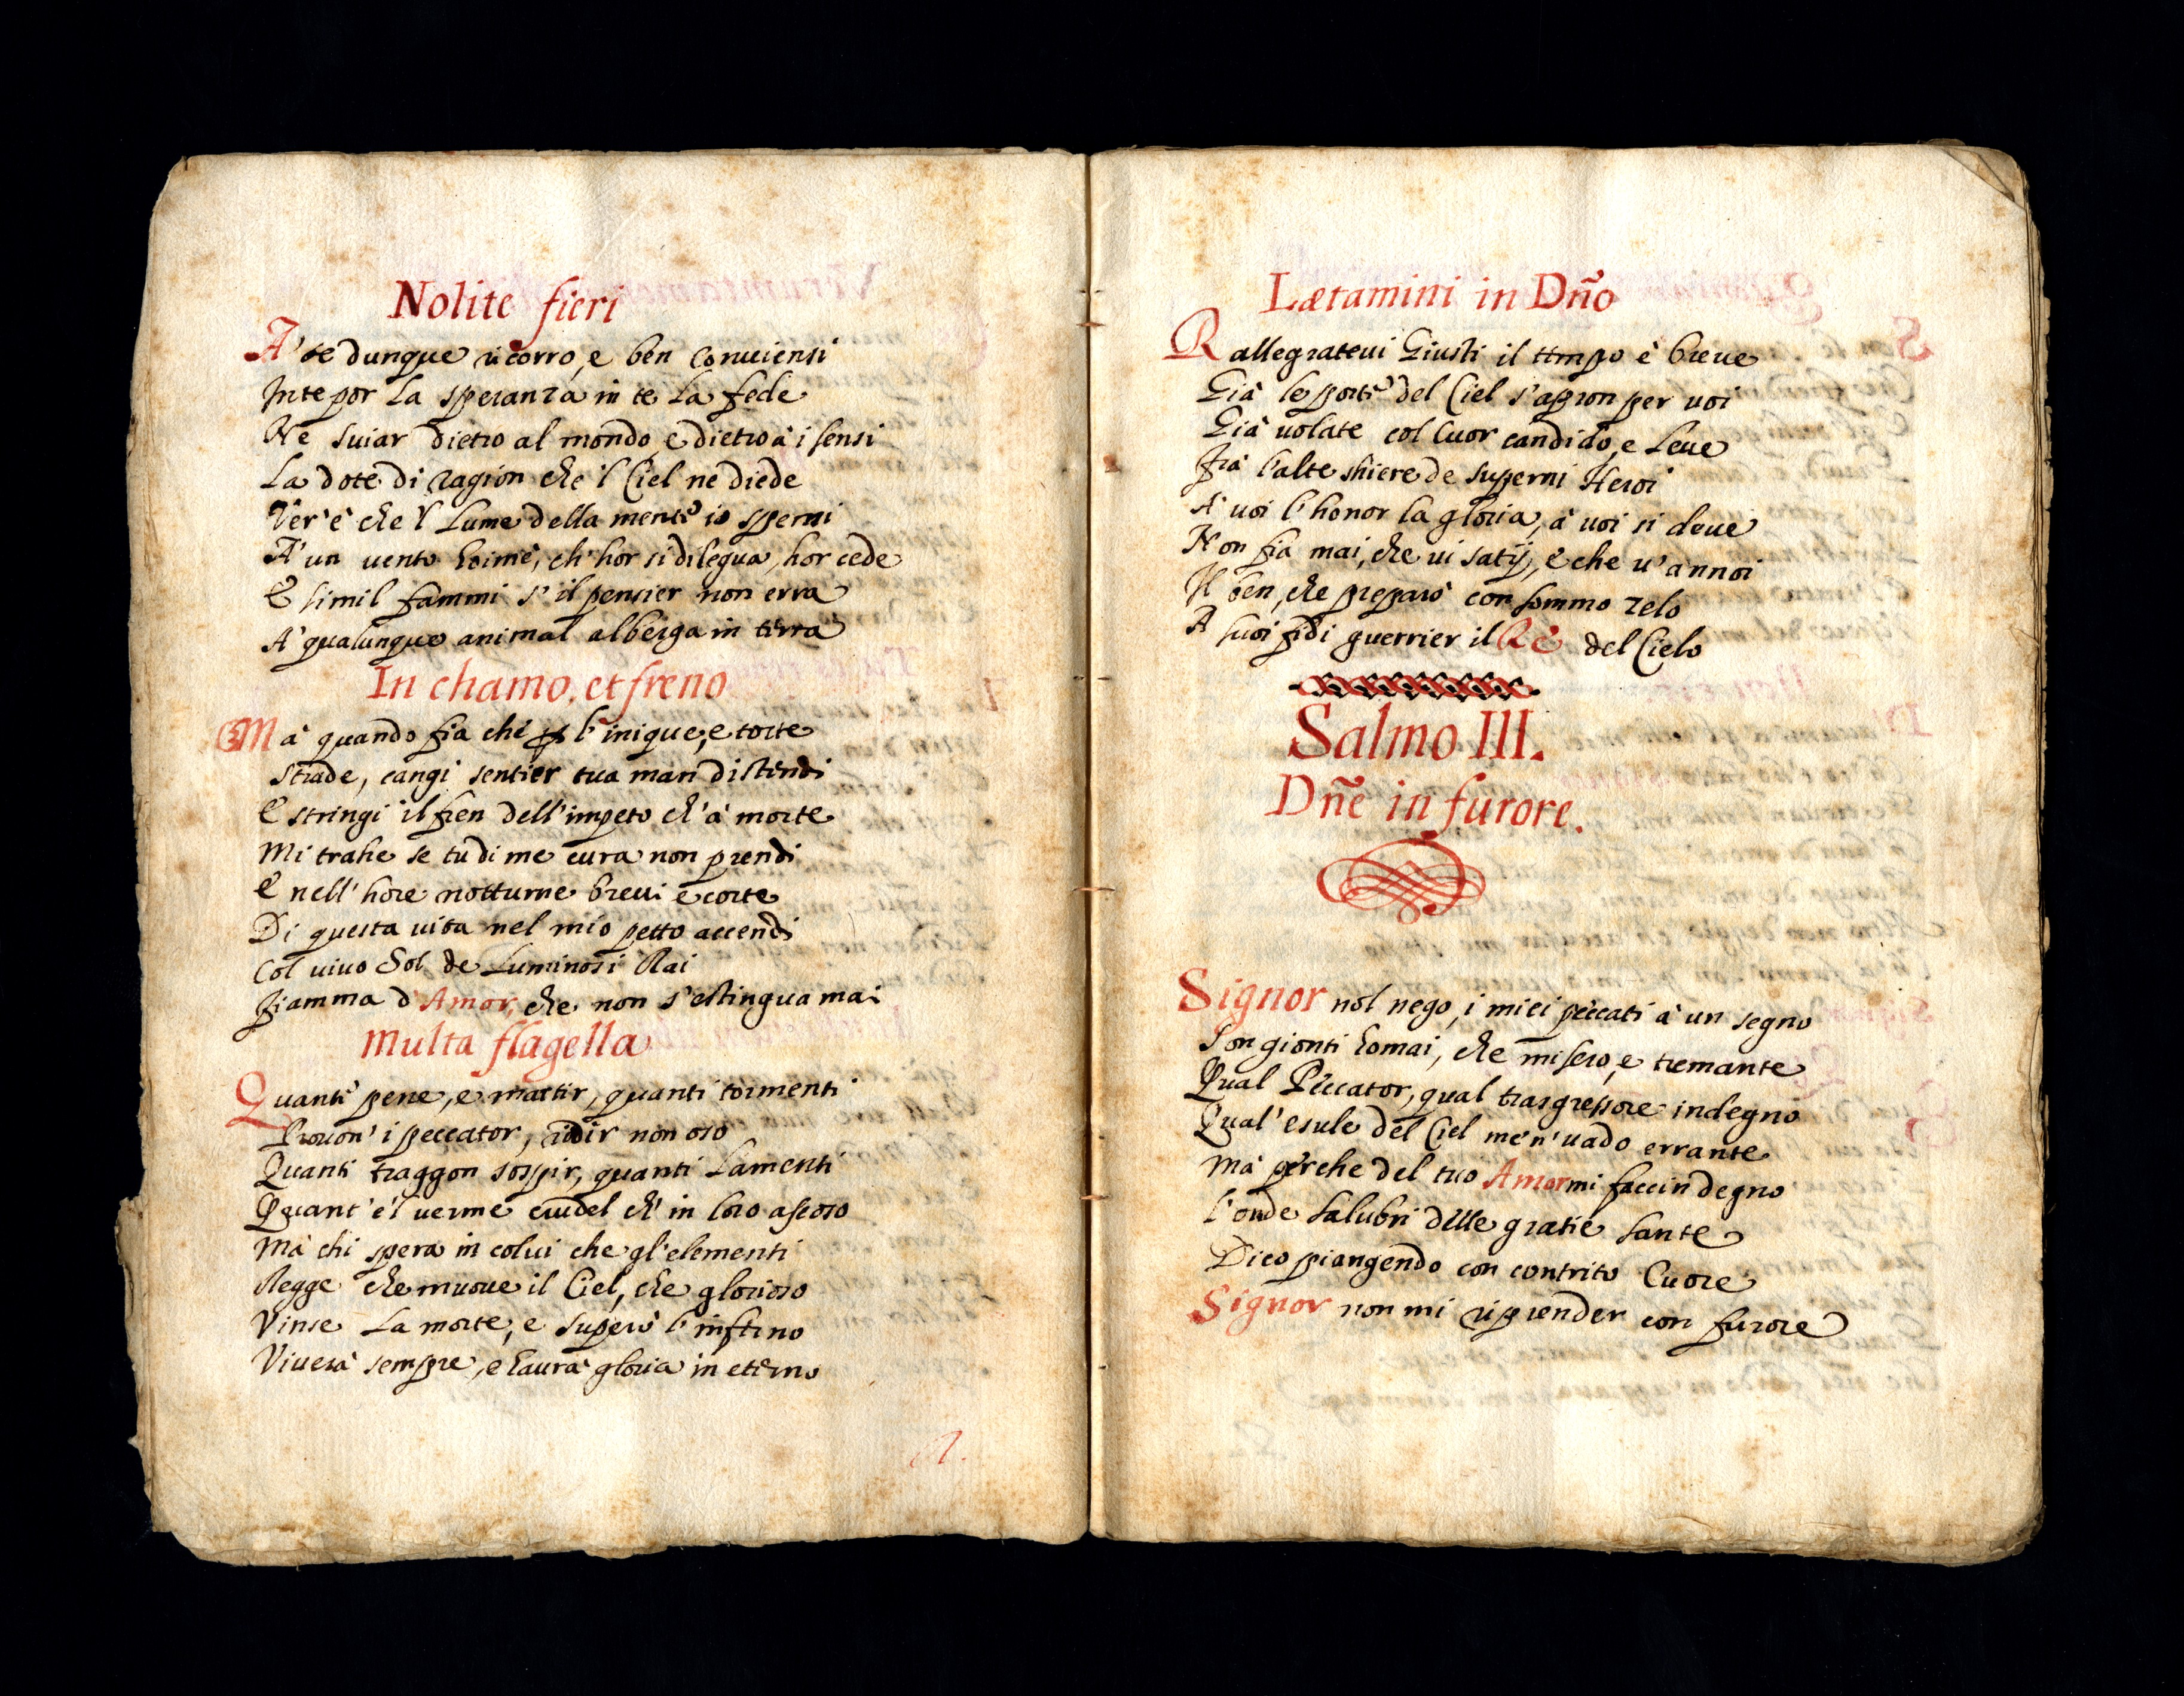 Nolite fieri
A' te dunque ricorro, e ben conuiensi
In te por la speranza in te la fede
Ne suiar dietro al mondo, e dietro à i sensi
La dote di ragion che 'l Ciel ne diede
Ver'è che 'l lume della mente io spensi
A' un vento hoimè, ch'hor si dilegua, hor cede
E simil fammi s'il pensier non erra
A' qualunque animal alberga in terra
In chamo, et freno
Mà quando fia che l'inique, e torte
Strade, cangi sentier tua man distendi
E stringi il fren dell'impeto ch'à morte
Mi trahe se tu di me cura non prendi
E nell'hore notturne breui e corte
Di questa uita nel mio petto accendi
Col uiuo Sol de Luminosi Rai
Fiamma d'Amor, che non s'estingua mai
Multa flagella
Quante pene, e martir, quanti tormenti
Prouon' i peccator, ridir non oso
Quanti traggon sospir, quanti Lamenti
Quant'è'l uerme crudel ch'in loro ascoso
Mà chi spera in colui che gl'elementi
Regge che muoue il Ciel, che glorioso
Vinse La morte, e superò l'inferno
Viuerà sempre, e haurà gloria in eterno
Lætamini in Dño
Rallegrateui Giusti il tempo è breue
Già le porte del Ciel s'apron per uoi
Già uolate col Cuor candido, e leue
Frà l'alte shiere de superni Heroi
A' uoi l'honor la gloria, à uoi si deue
Non fia mai, che ui satij, e che u'annoi
Il ben, che preparò con sommo zelo
A suoi fidi guerrier il Rè del Cielo
Salmo III.
Dñe in furore.
Signor nol nego, i miei peccati à un segno
Son gionti homai, che misero, e tremante
Qual Peccator, qual trasgressore indegno
Qual'esule del Ciel me n'uado errante
Mà perche del tuo Amor mi faccin degno
L'onde salubri delle gratie sante
Dico piangendo con contrito Cuore
Signor non mi riprender con furore